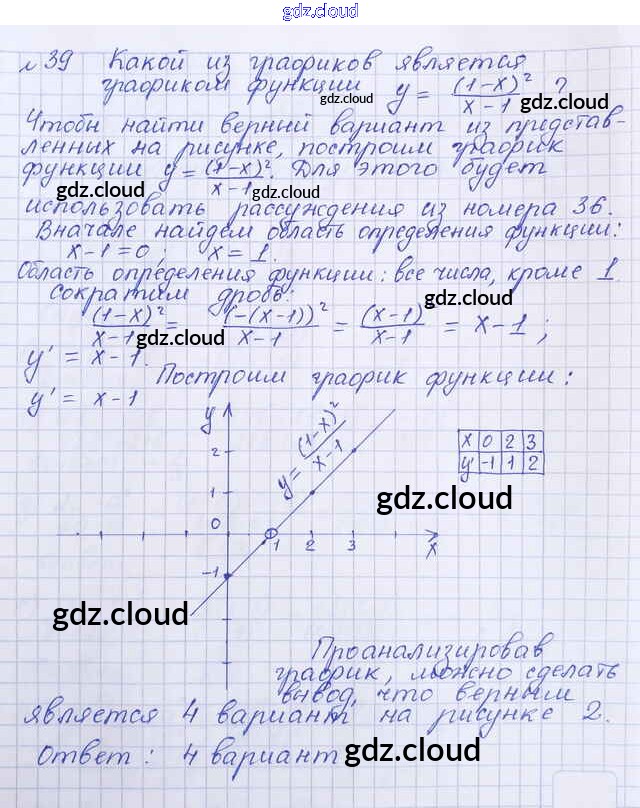 gdz.cloud
№39 Какой из графиков является
графиком функции y = (1-x)²/x-1 ?
gdz.cloud gdz.cloud
Чтобы найти верный вариант из представ-
ленных на рисунке, построим график
функции y = (1-x)²/x-1. Для этого будет
gdz.cloud gdz.cloud
использовать рассуждения из номера 36.
Вначале найдем область определения функции:
x-1=0; x=1.
Область определения функции: все числа, кроме 1.
сократим дробь:
gdz.cloud
(1-x)²/x-1 = (-(x-1))²/x-1 = (x-1)/x-1 = x-1;
gdz.cloud
y' = x-1.
Построим график функции:
y' = x-1
y
y = (1-x)²/x-1
x 0 2 3
y' -1 1 2
2
1
gdz.cloud
0
1 2 3 x
-1
gdz.cloud
Проанализировав
график, можно сделать
вывод, что верным
является 4 вариант на рисунке 2.
Ответ: 4 вариант
gdz.cloud